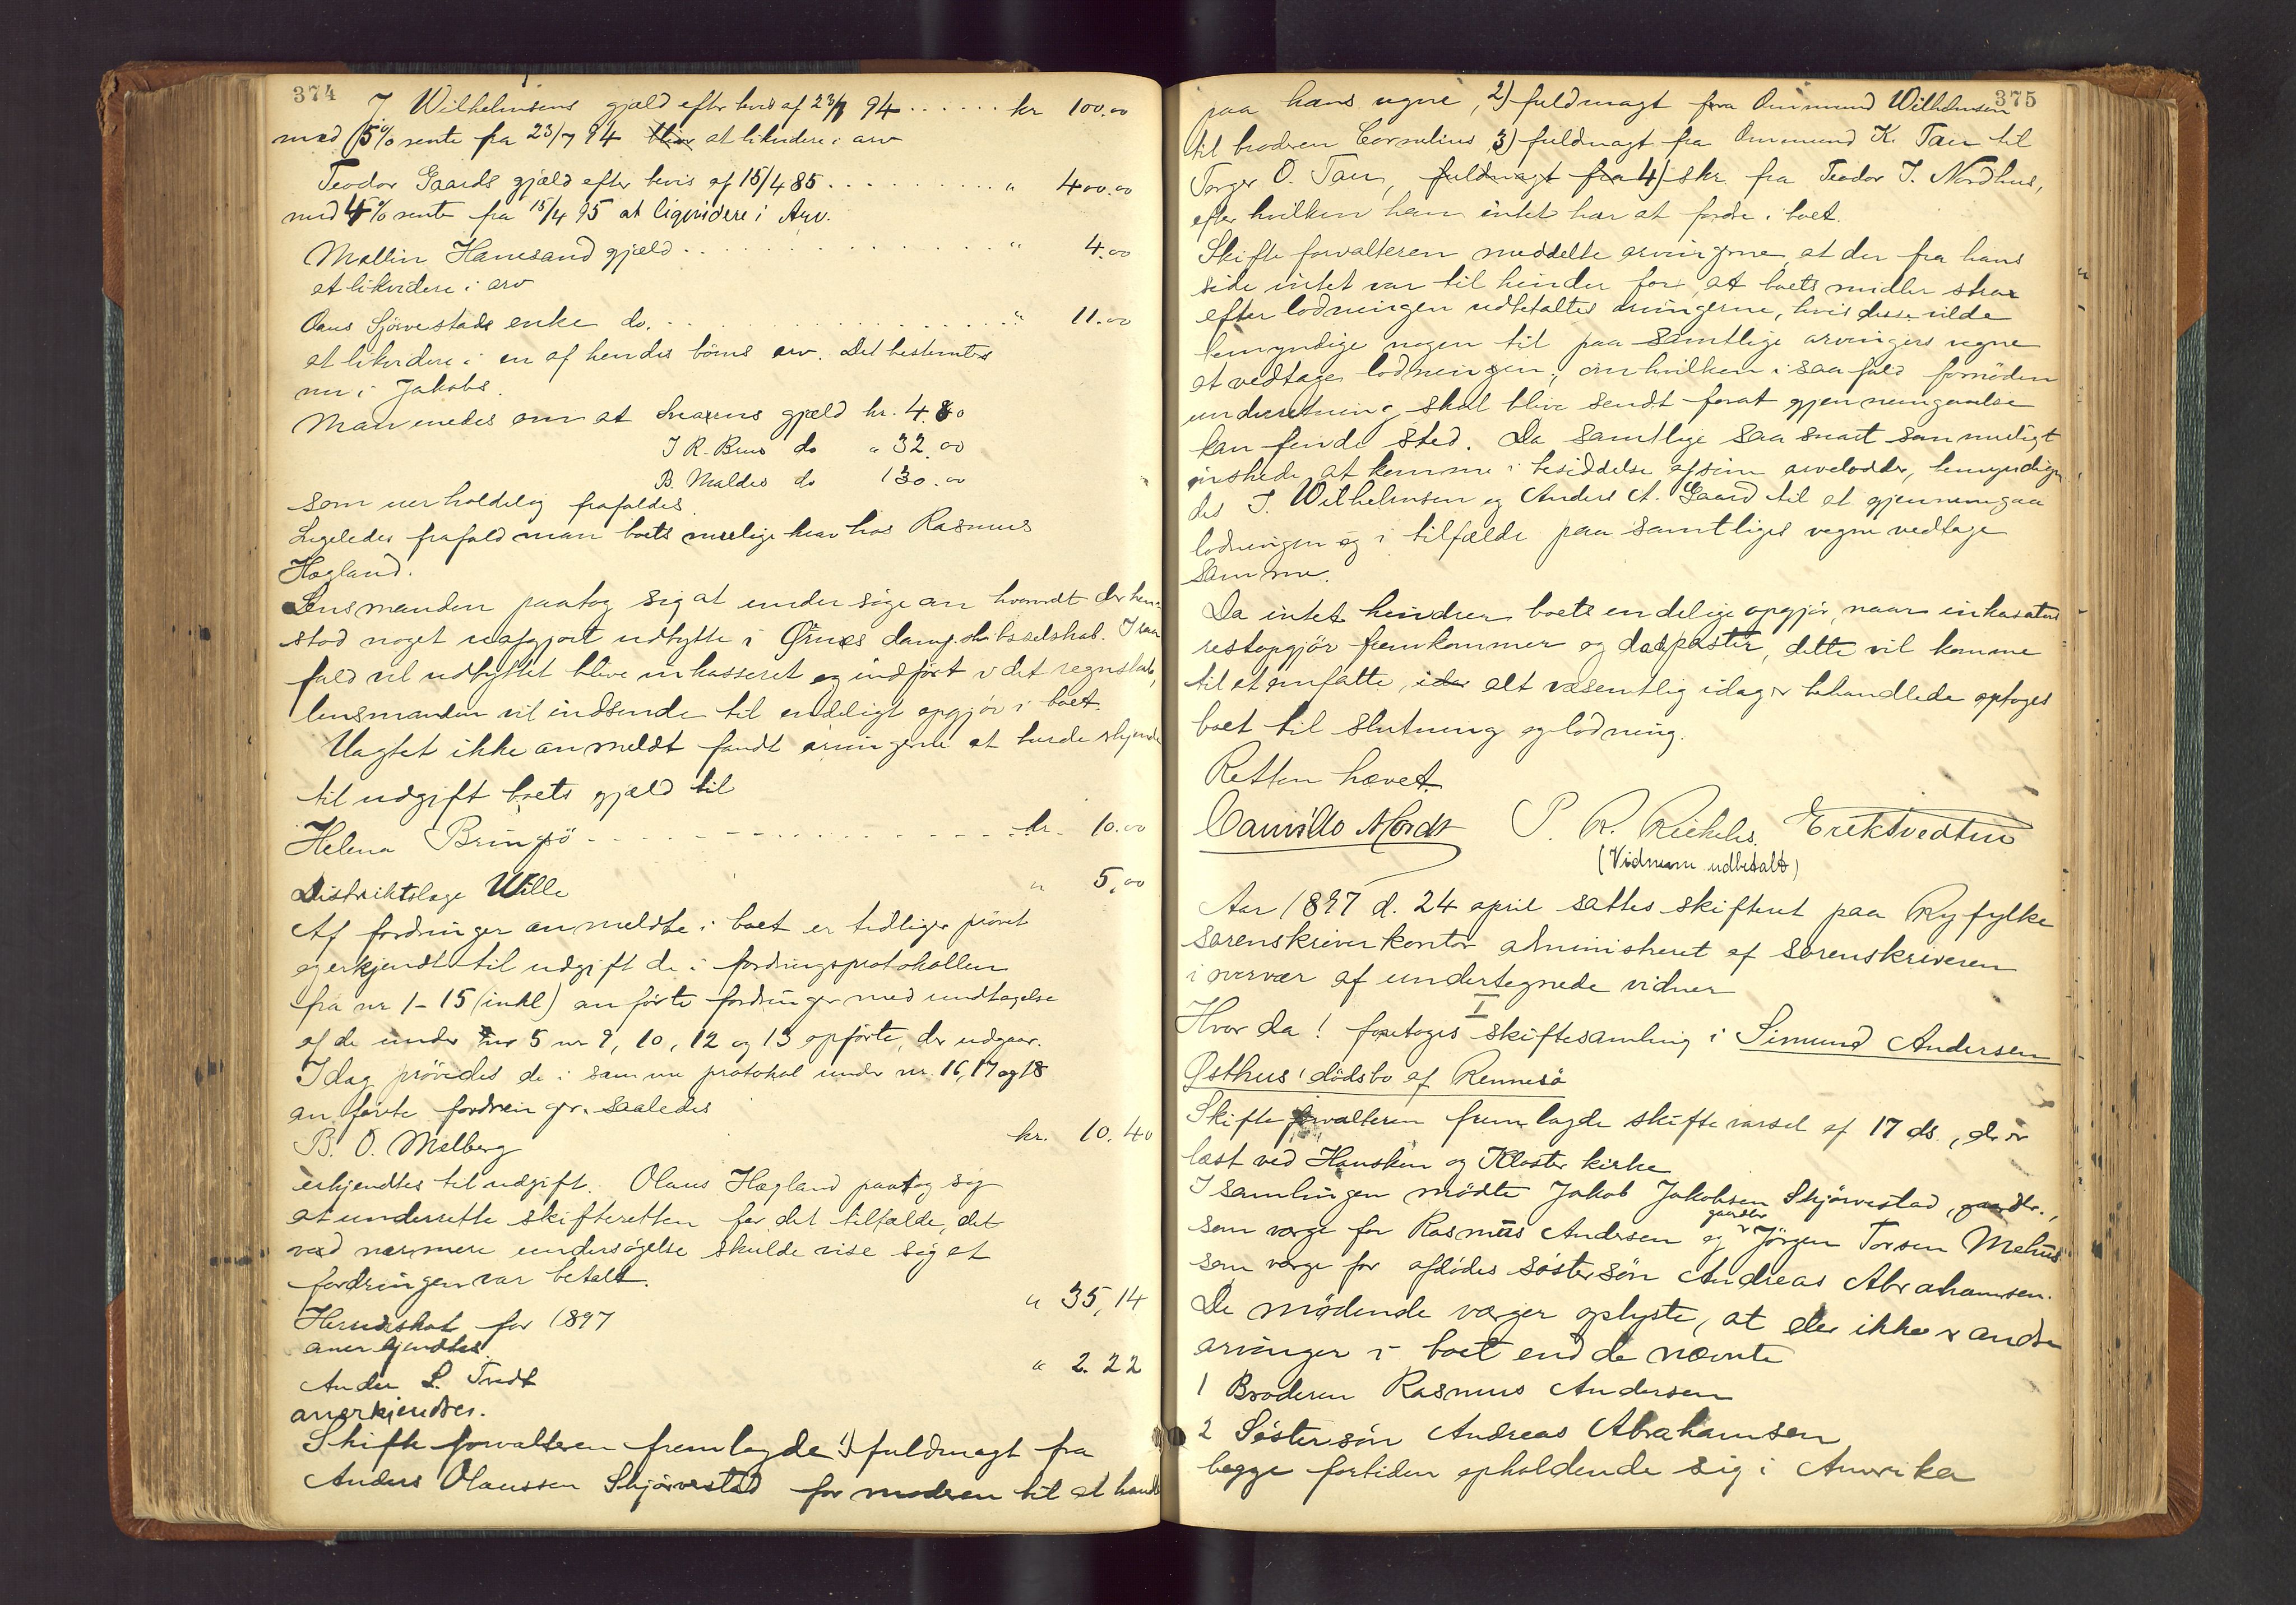 374
J. Wilhelmsens gjæld efter bevis af 23/7 94 ...... kr 100.00
med 5% rente fra 23/7 94 bliver at likvidere i arv
Teodor Gaards gjæld efter bevis af 15/4 85 .......... " 400.00
med 4% rente fra 15/4 95 at liqvidere i Arv.
Mallin Hanesand gjæld .. " 4.00
at likvidere i arv
Olaus Sjörvestads enke do. .. " 11.00
at likvidere i en af hendes börns arv. Det bestemtes
nu i Jakobs.
Man enedes om at gjæld kr. 4.80
I R. Brus do " 32.00
B. Maldes do 130.00
som uerholdelig frafaldes.
Ligeledes frafald man boets mulige krav hos Rasmus
Hagland.
Lensmanden paatog sig at undersöge om hvorvidt der hen-
stod noget uafgjort udbytte i dampskibsselskab. I saa
fald vil udbyttet blive inkasseret og indfört i det regnskab,
lensmanden vil indsende til endeligt opgjör i boet.
Uagtet ikke anmeldt fandt arvingerne at burde erkjende
til udgift boets gjæld til
Helena Bringsö .. kr. 10.00
Distriktslæge Wille " 5.00
Af fordringer anmeldte i boet er tidligere prövet
og erkjendt til udgift de i fordringsprotokollen
fra nr 1–15 (inkl) anförte fordringer med undtagelse
af de under nr 5 nr 9, 10, 12 og 13 opförte, der udgaar.
Idag prövedes de i samme protokol under nr. 16, 17 og 18
anförte fordringer saaledes
B. O. Malberg kr. 10.40
erkjendtes til udgift. Olaus Hagland paatog sig
at underrette skifteretten for det tilfælde, det
ved nærmere undersögelse skulde vise sig at
fordringen var betalt.
Herredskat for 1897 " 35,14
anerkjendtes.
Anders L. Tvedt " 2.22
anerkjendtes.
Skifteforvalteren fremlagde 1) fuldmagt fra
Anders Olaussen Skjörvestad for moderen til at handle
375
paa hans vegne, 2) fuldmagt fra Ommund Wilhelmsen
til broderen Cornelius 3) fuldmagt fra Ommund K. Tau til
Torger O. Tau, fuldmagt fra 4) skr. fra Teodor J. Nordhus,
efter hvilken han intet har at fordre i boet.
Skifteforvalteren meddelte arvingerne, at der fra hans
side intet var til hinder for, at boets midler strax
efter lodningen udbetaltes arvingerne, hvis disse vilde
bemyndige nogen til paa samtlige arvingers vegne
at vedtage lodningen, om hvilken i saa fald fornöden
underretning skal blive sendt forat gjennemgaaelse
kan finde sted. Da samtlige saa snart som muligt
önskede at komme i besiddelse af sine arvelodder, bemyndige-
des J. Wilhelmsen og Anders A. Gaard til at gjennemgaa
lodningen og i tilfælde paa samtliges vegne vedtage
samme.
Da intet hindrer boets endelige opgjör, naar inkasators
restopgjör fremkommer og dødsposter, dette vil komme
til at omfatte, idag alt væsentlig idag er behandlede optoges
boet til slutning og lodning.
Retten hævet.
Camillo Mordt P. R. Rickeles. Erik Tvedten
(Vidnerne udbetalt)
Aar 1897 d. 24 april sattes skifteret paa Ryfylke
sorenskriverkontor administreret af sorenskriveren
i overvær af undertegnede vidner
I
Hvor da! foretoges skiftesamling i Simund Andersen
Østhus' dödsbo af Rennesö
Skifteforvalteren fremlagde skiftevarsel af 17 ds., der er
læst ved Hausken og Kloster kirke
I samlingen mödte Jakob Jakobsen Skjörvestad, gaardbr.,
som værge for Rasmus Andersen og gaardbr Jörgen Torsen Mehus
som værge for afdödes söstersön Andreas Abrahamsen.
De mödende værger oplyste, at der ikke er andre
arvinger i boet end de nævnte
1 Broderen Rasmus Andersen
2 Söstersön Andreas Abrahamsen
begge fortiden opholdende sig i Amerika